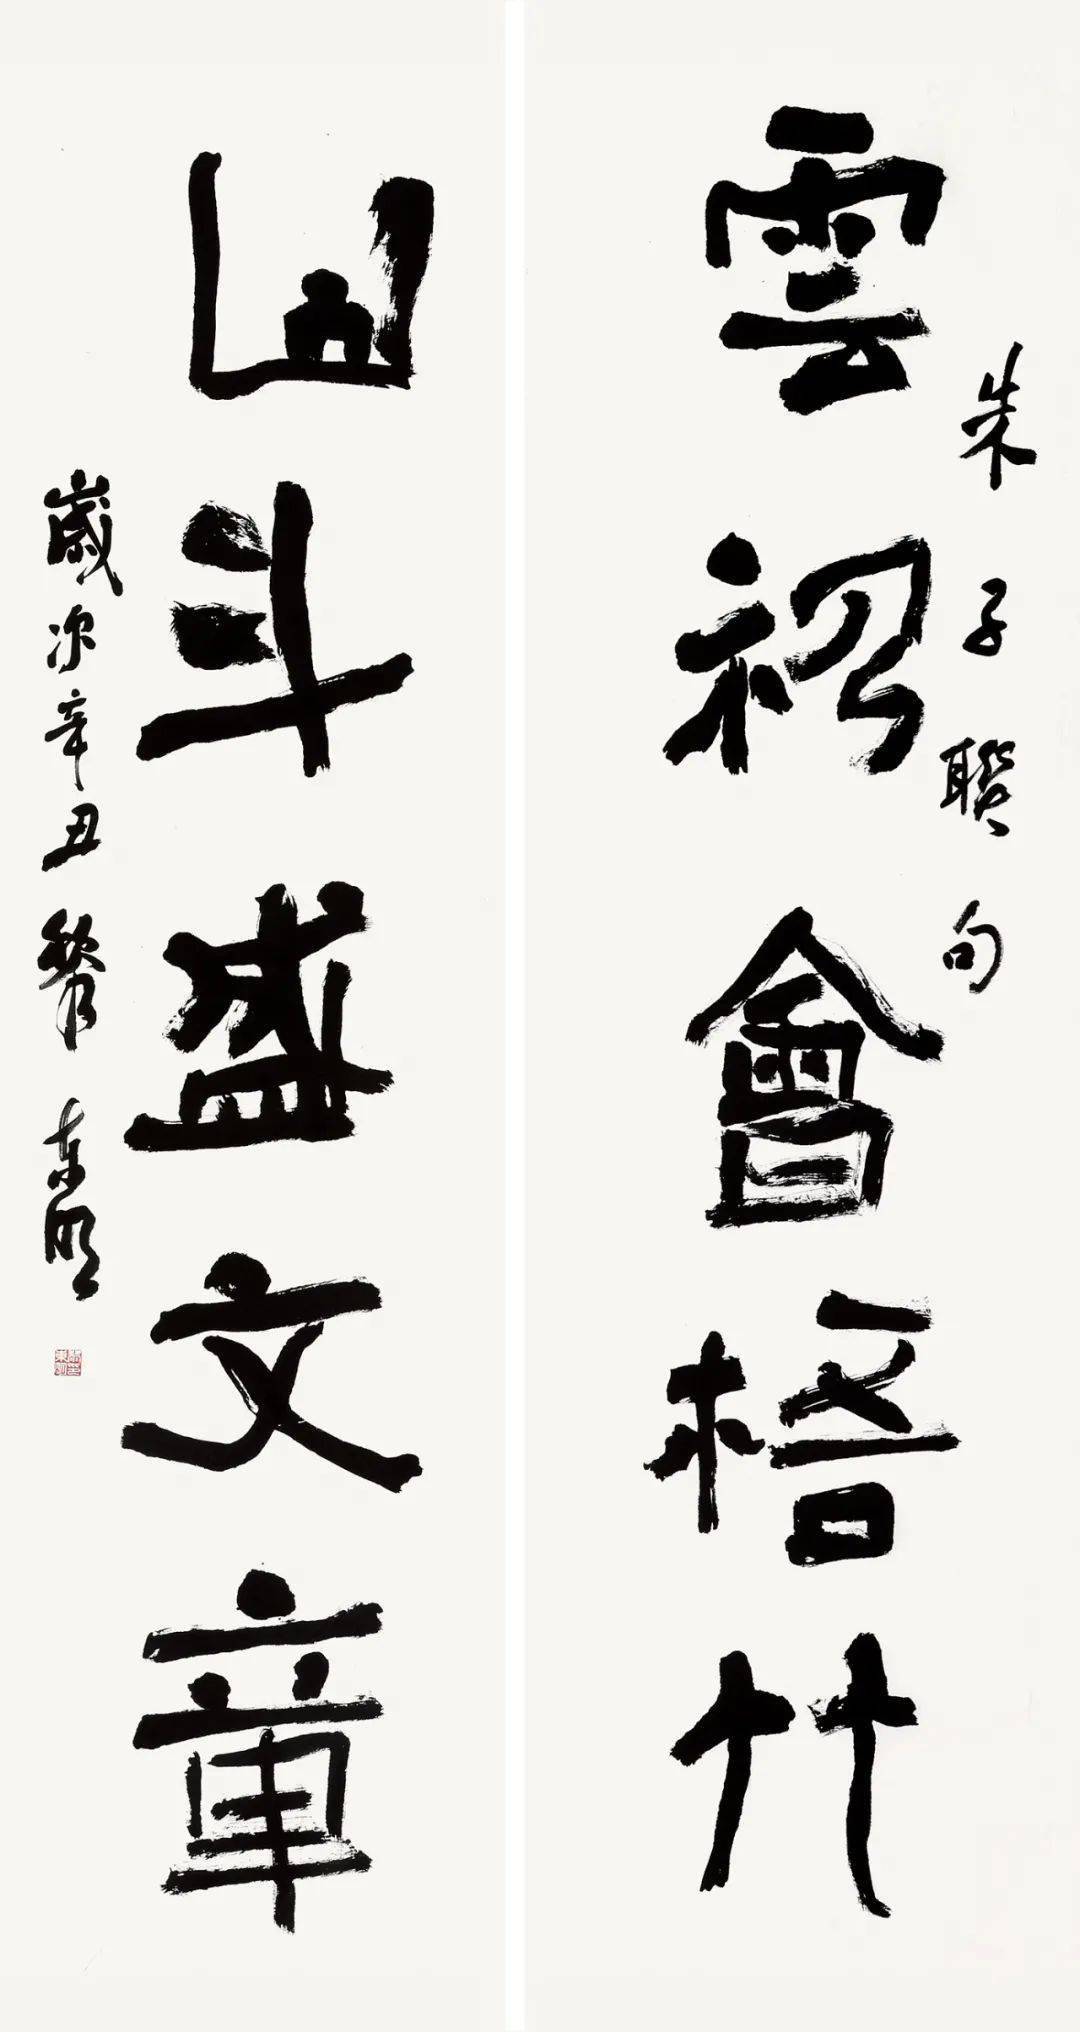 朱子聯句
雲礽會梧竹
山斗盛文章
歲次辛丑東明